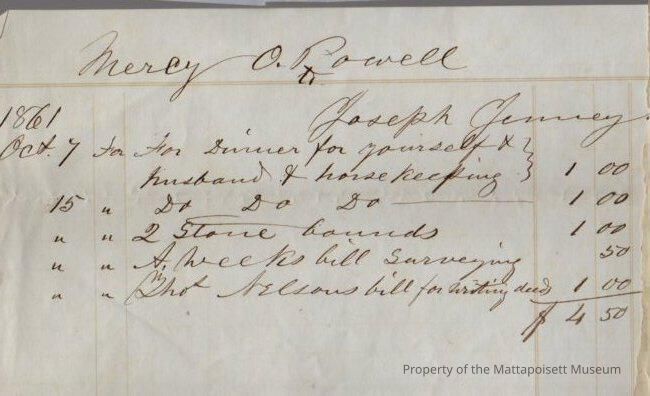 Mercy O. Rowell
To
1861 Joseph Jenney
Oct. 7 For For Dinner for yourself &
husband & horsekeeping } 1 00
15 " Do Do Do 1 00
" " 2 Stone bounds 1 00
" " A Weeks bill Surveying 50
" " Thos Nelsons bill for writing deed 1 00
$ 4 50
Property of the Mattapoisett Museum